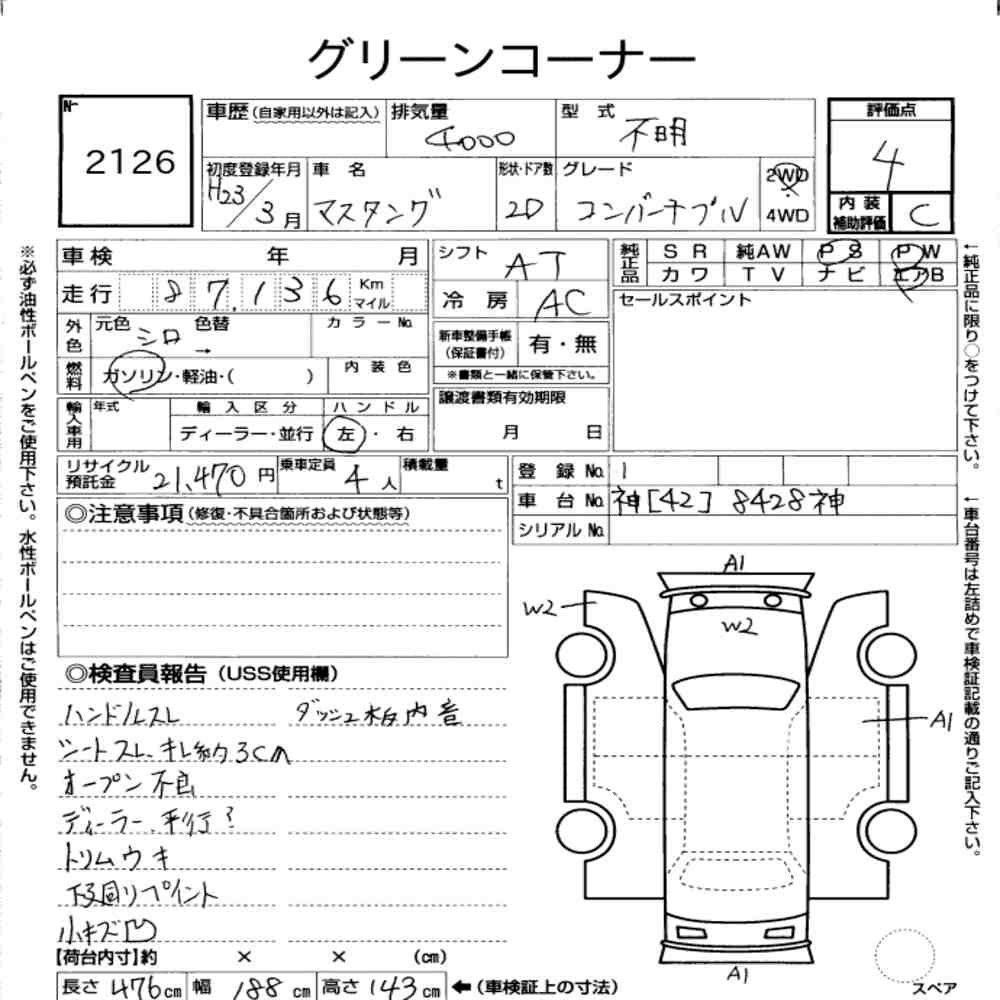 グリーンコーナー
No. 2126
車歴(自家用以外は記入) 排気量 4000 型式 不明
評価点 4
初度登録年月 H23/3月 車名 マスタング 形状・ドア数 2D グレード コンバーチブル 2WD 4WD
内装補助評価 C
車検 年 月
シフト AT
純正品 SR 純AW PS PW
カワ TV ナビ エアB
走行 87,136 Km マイル
冷房 AC
セールスポイント
外色 元色 シロ 色替 → カラーNo.
新車整備手帳(保証書付) 有・無
※書類と一緒に保管下さい。
燃料 ガソリン・軽油・( ) 内装色
譲渡書類有効期限 月 日
輸入車用 年式 輸入区分 ハンドル
ディーラー・並行 左・右
リサイクル預託金 21,470円 乗車定員 4人 積載量 t
登録No. 1
車台No. 神[42]8428神
シリアルNo.
◎注意事項(修復・不具合箇所および状態等)
◎検査員報告(USS使用欄)
ハンドルスレ ダッシュ板内音
シートスレ、キレ約3cm
オープン不良
ディーラー、平行?
トリムウキ
下回リプイント
小キズ凹
【荷台内寸】約 × × (cm)
長さ476cm 幅188cm 高さ143cm ←(車検証上の寸法)
A1
W2
W2
A1
A1
スペア
※必ず油性ボールペンをご使用下さい。水性ボールペンはご使用できません。
←純正品に限り○をつけて下さい。
←車台番号は左詰めで車検証記載の通りご記入下さい。